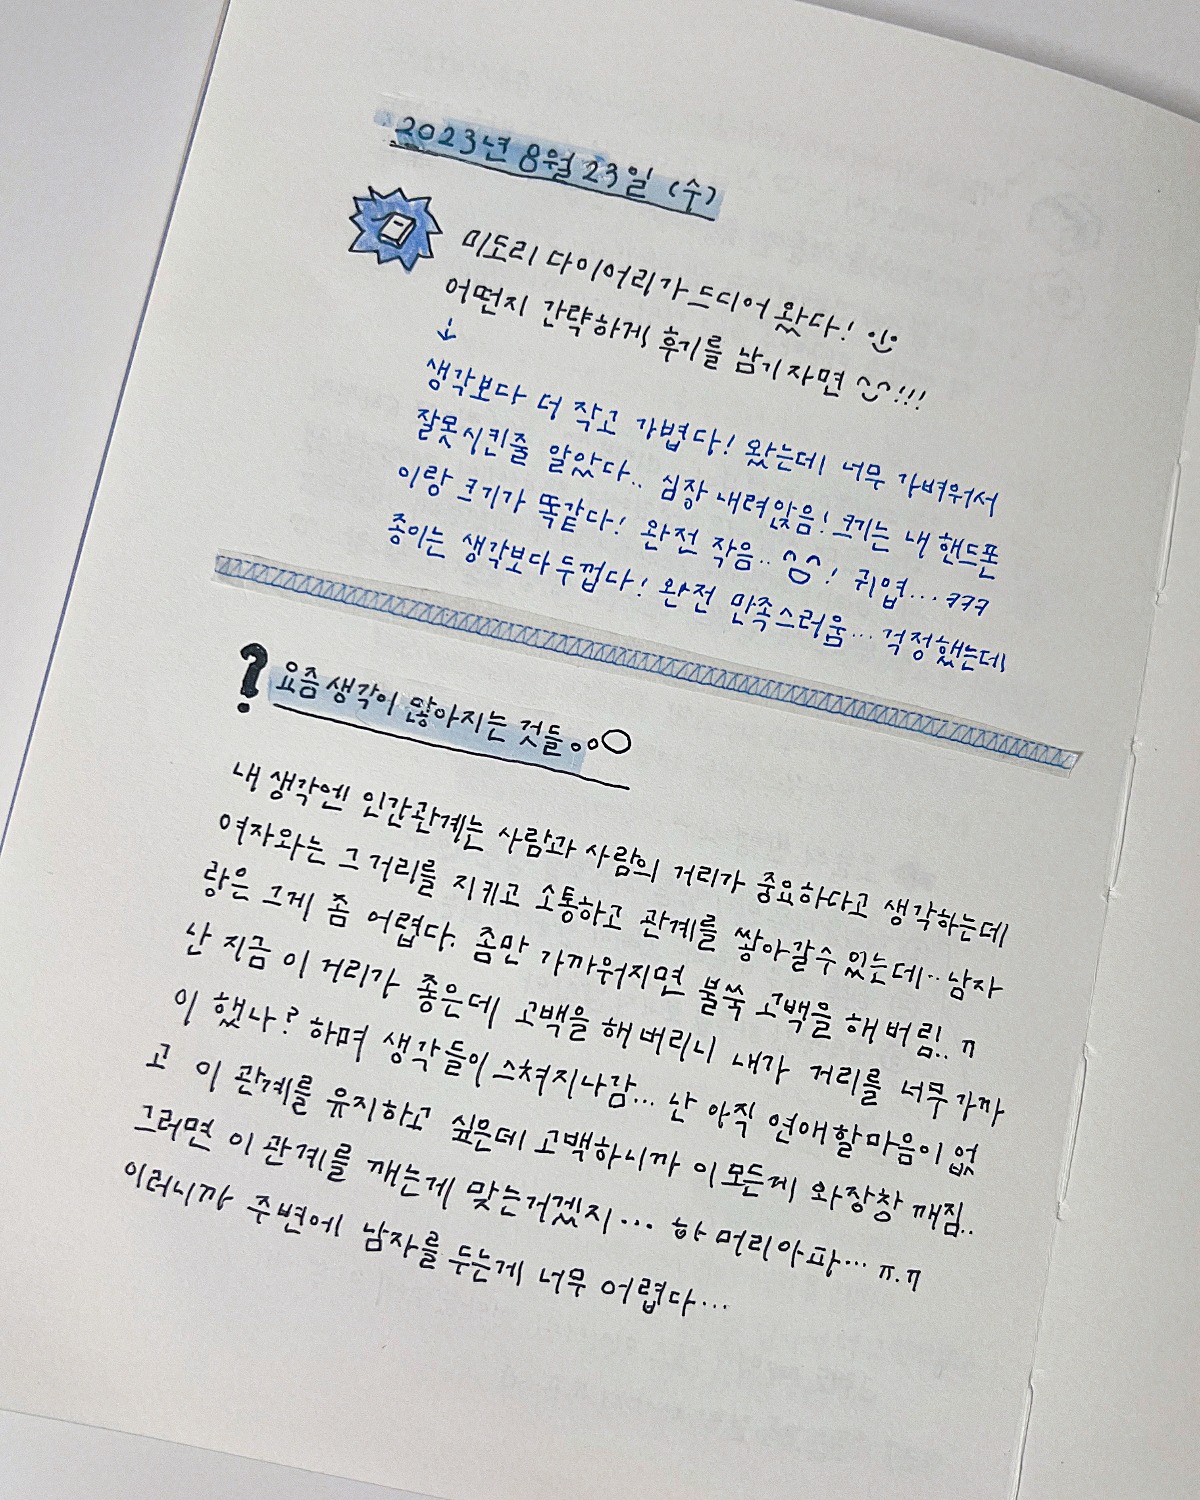 2023년 8월 23일 (수)
미도리 다이어리가 드디어 왔다!
어떤지 간략하게 후기를 남기자면 !!!
↓
생각보다 더 작고 가볍다! 왔는데 너무 가벼워서
잘못시킨줄 알았다.. 심장 내려앉음! 크기는 내 핸드폰
이랑 크기가 똑같다! 완전 작음.. ! 귀엽... ㅋㅋㅋ
종이는 생각보다 두껍다! 완전 만족스러움... 걱정했는데
? 요즘 생각이 많아지는 것들
내 생각엔 인간관계는 사람과 사람의 거리가 중요하다고 생각하는데
여자와는 그 거리를 지키고 소통하고 관계를 쌓아갈수 있는데.. 남자
랑은 그게 좀 어렵다. 좀만 가까워지면 불쑥 고백을 해버림.. ㅠ
난 지금 이 거리가 좋은데 고백을 해버리니 내가 거리를 너무 가까
이 했나? 하며 생각들이 스쳐지나감... 난 아직 연애할마음이 없
고 이 관계를 유지하고 싶은데 고백하니까 이모든게 와장창 깨짐..
그러면 이 관계를 깨는게 맞는거겠지... 하 머리아파... ㅠ.ㅠ
이러니까 주변에 남자를 두는게 너무 어렵다...